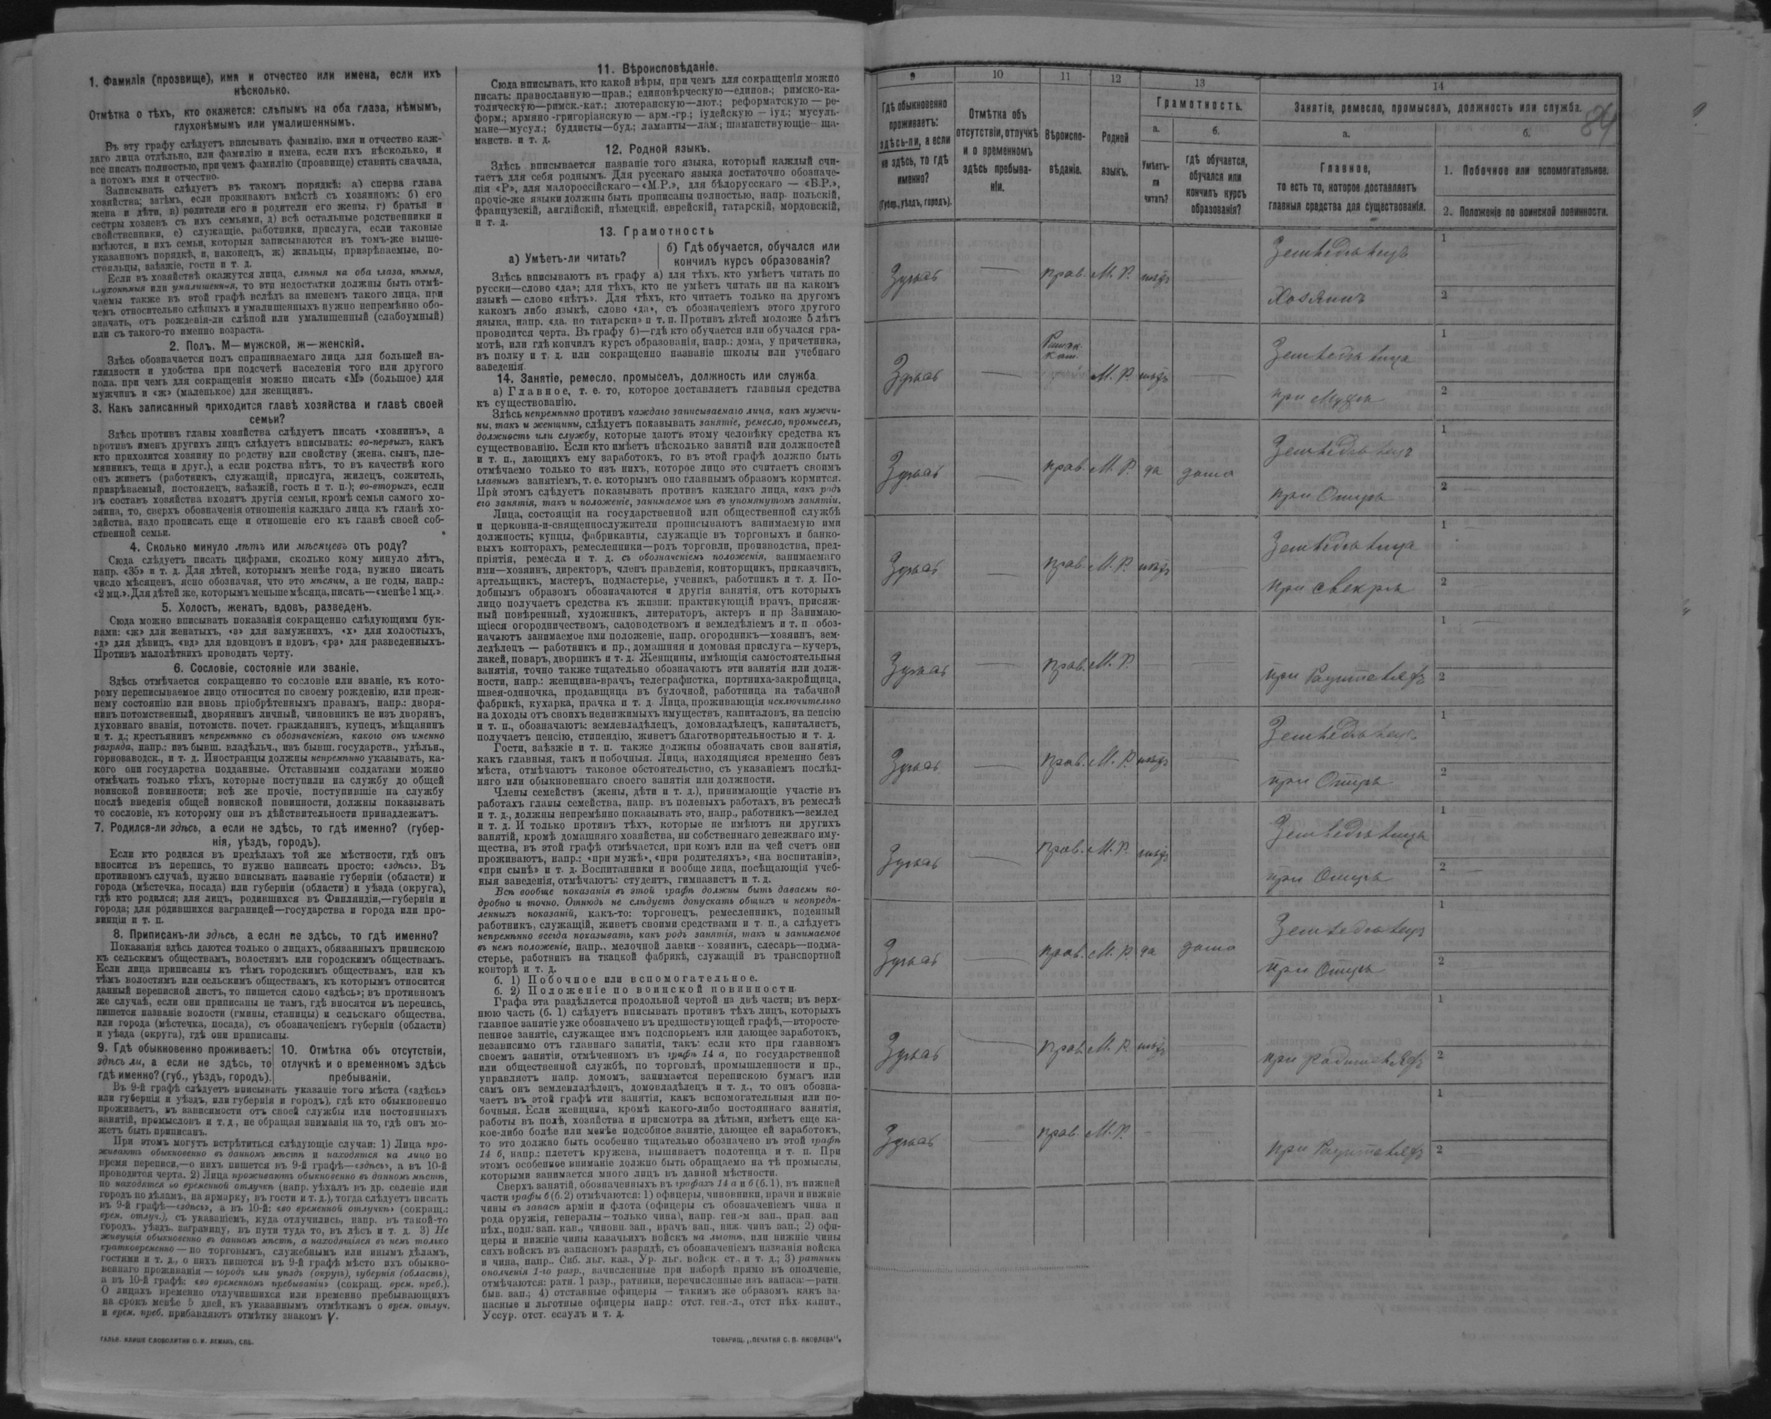 1. Фамилія (прозвище), имя и отчество или имена, если ихъ
нѣсколько.
Отмѣтка о тѣхъ, кто окажется: слѣпымъ на оба глаза, нѣмымъ,
глухонѣмымъ или умалишеннымъ.
Въ эту графу слѣдуетъ вписывать фамилію, имя и отчество каж-
даго лица отдѣльно, или фамилію и имена, если ихъ нѣсколько, и
все писать полностью, при чемъ фамилію (прозвище) ставить сначала,
а потомъ имя и отчество.
Записывать слѣдуетъ въ такомъ порядкѣ: а) сперва глава
хозяйства; затѣмъ, если проживаютъ вмѣстѣ съ хозяиномъ: б) его
жена и дѣти, в) родители его и родители его жены, г) братья и
сестры хозяевъ съ ихъ семьями, д) всѣ остальные родственники и
свойственники, е) служащіе, работники, прислуга, если таковые
имѣются, и ихъ семьи, которыя записываются въ томъ-же выше-
указанномъ порядкѣ, и, наконецъ, ж) жильцы, призрѣваемые, по-
стояльцы, заѣзжіе, гости и т. д.
Если въ хозяйствѣ окажутся лица, слѣпыя на оба глаза, нѣмыя,
глухонѣмыя или умалишенныя, то эти недостатки должны быть отмѣ-
чаемы также въ этой графѣ вслѣдъ за именемъ такого лица, при
чемъ относительно слѣпыхъ и умалишенныхъ нужно непремѣнно обо-
значать, отъ рожденія-ли слѣпой или умалишенный (слабоумный)
или съ такого-то именно возраста.
2. Полъ. М—мужской, ж—женскій.
Здѣсь обозначается полъ спрашиваемаго лица для большей на-
глядности и удобства при подсчетѣ населенія того или другого
пола, при чемъ для сокращенія можно писать «М» (большое) для
мужчинъ и «ж» (маленькое) для женщинъ.
3. Какъ записанный приходится главѣ хозяйства и главѣ своей
семьи?
Здѣсь противъ главы хозяйства слѣдуетъ писать «хозяинъ», а
противъ именъ другихъ лицъ слѣдуетъ вписывать: во-первыхъ, какъ
кто приходится хозяину по родству или свойству (жена, сынъ, пле-
мянникъ, теща и друг.), а если родства нѣтъ, то въ качествѣ кого
онъ живетъ (работникъ, служащій, прислуга, жилецъ, сожитель,
призрѣваемый, постоялецъ, заѣзжій, гость и т. п.); во-вторыхъ, если
въ составъ хозяйства входятъ другія семьи, кромѣ семьи самого хо-
зяина, то, сверхъ обозначенія отношенія каждаго лица къ главѣ хо-
зяйства, надо прописать еще и отношеніе его къ главѣ своей соб-
ственной семьи.
4. Сколько минуло лѣтъ или мѣсяцевъ отъ роду?
Сюда слѣдуетъ писать цифрами, сколько кому минуло лѣтъ,
напр. «35» и т. д. Для дѣтей, которымъ менѣе года, нужно писать
число мѣсяцевъ, ясно обозначая, что это мѣсяцы, а не годы, напр.:
«2 мц.». Для дѣтей же, которымъ меньше мѣсяца, писать—«менѣе 1 мц.».
5. Холостъ, женатъ, вдовъ, разведенъ.
Сюда можно вписывать показанія сокращенно слѣдующими бук-
вами: «ж» для женатыхъ, «з» для замужнихъ, «х» для холостыхъ,
«д» для дѣвицъ, «вд» для вдовцовъ и вдовъ, «рз» для разведенныхъ.
Противъ малолѣтнихъ проводить черту.
6. Сословіе, состояніе или званіе.
Здѣсь отмѣчается сокращенно то сословіе или званіе, къ кото-
рому переписываемое лицо относится по своему рожденію, или преж-
нему состоянію или вновь пріобрѣтеннымъ правамъ, напр.: дворя-
нинъ потомственный, дворянинъ личный, чиновникъ не изъ дворянъ,
духовнаго званія, потомств. почет. гражданинъ, купецъ, мѣщанинъ
и т. д.; крестьянинъ непремѣнно съ обозначеніемъ, какого онъ именно
разряда, напр.: изъ бывш. владѣльч., изъ бывш. государств., удѣльн.,
горнозаводск., и т. д. Иностранцы должны непремѣнно указывать, ка-
кого они государства подданные. Отставными солдатами можно
отмѣчать только тѣхъ, которые поступили на службу до общей
воинской повинности; всѣ же прочіе, поступившіе на службу
послѣ введенія общей воинской повинности, должны показывать
то сословіе, къ которому они въ дѣйствительности принадлежатъ.
7. Родился-ли здѣсь, а если не здѣсь, то гдѣ именно? (губер-
нія, уѣздъ, городъ).
Если кто родился въ предѣлахъ той же мѣстности, гдѣ онъ
вносится въ перепись, то нужно написать просто: «здѣсь». Въ
противномъ случаѣ, нужно вписывать названіе губерніи (области) и
города (мѣстечка, посада) или губерніи (области) и уѣзда (округа),
гдѣ кто родился; для лицъ, родившихся въ Финляндіи,—губерніи и
города; для родившихся заграницей—государства и города или про-
винціи и т. п.
8. Приписанъ-ли здѣсь, а если не здѣсь, то гдѣ именно?
Показанія здѣсь даются только о лицахъ, обязанныхъ припискою
къ сельскимъ обществамъ, волостямъ или городскимъ обществамъ.
Если лица приписаны къ тѣмъ городскимъ обществамъ, или къ
тѣмъ волостямъ или сельскимъ обществамъ, къ которымъ относится
данный переписной листъ, то пишется слово «здѣсь»; въ противномъ
же случаѣ, если они приписаны не тамъ, гдѣ вносятся въ перепись,
пишется названіе волости (гмины, станицы) и сельскаго общества,
или города (мѣстечка, посада), съ обозначеніемъ губерніи (области)
и уѣзда (округа), гдѣ они приписаны.
9. Гдѣ обыкновенно проживаетъ:
здѣсь ли, а если не здѣсь, то
гдѣ именно? (губ., уѣздъ, городъ).
10. Отмѣтка объ отсутствіи,
отлучкѣ и о временномъ здѣсь
пребываніи.
Въ 9-й графѣ слѣдуетъ вписывать указаніе того мѣста («здѣсь»
или губернія и уѣздъ, или губернія и городъ), гдѣ кто обыкновенно
проживаетъ, въ зависимости отъ своей службы или постоянныхъ
занятій, промысловъ и т. д., не обращая вниманія на то, гдѣ онъ мо-
жетъ быть приписанъ.
При этомъ могутъ встрѣтиться слѣдующіе случаи: 1) Лица про-
живаютъ обыкновенно въ данномъ мѣстѣ и находятся на лицо во
время переписи,—о нихъ пишется въ 9-й графѣ—«здѣсь», а въ 10-й
проводится черта. 2) Лица проживаютъ обыкновенно въ данномъ мѣстѣ,
но находятся во временной отлучкѣ (напр. уѣхалъ въ др. селеніе или
городъ по дѣламъ, на ярмарку, въ гости и т. д.), тогда слѣдуетъ писать
въ 9-й графѣ—«здѣсь», а въ 10-й: «во временной отлучкѣ» (сокращ.:
врем. отлуч.), съ указаніемъ, куда отлучились, напр. въ такой-то
городъ, уѣздъ, заграницу, въ пути туда то, въ лѣсъ и т. д. 3) Не
живущія обыкновенно въ данномъ мѣстѣ, а находящіяся въ немъ только
кратковременно — по торговымъ, служебнымъ или инымъ дѣламъ,
гостями и т. д., о нихъ пишется въ 9-й графѣ мѣсто ихъ обыкно-
веннаго проживанія — городъ или уѣздъ (округъ), губернія (область),
а въ 10-й графѣ: «во временномъ пребываніи» (сокращ. врем. преб.).
О лицахъ временно отлучившихся или временно пребывающихъ
на срокъ менѣе 5 дней, къ указаннымъ отмѣткамъ о врем. отлуч.
и врем. преб. прибавляютъ отмѣтку знакомъ V.
11. Вѣроисповѣданіе.
Сюда вписывать, кто какой вѣры, при чемъ для сокращенія можно
писать: православную—прав.; единовѣрческую—единов.; римско-ка-
толическую—римск.-кат.; лютеранскую—лют.; реформатскую — ре-
форм.; армяно-григоріанскую — арм.-гр.; іудейскую — іуд.; мусуль-
мане—мусул.; буддисты—буд.; ламаиты—лам.; шаманствующіе— ша-
манств. и т. д.
12. Родной языкъ.
Здѣсь вписывается названіе того языка, который каждый счи-
таетъ для себя роднымъ. Для русскаго языка достаточно обозначе-
нія «Р», для малороссійскаго—«М.Р.», для бѣлорусскаго — «Б.Р.»,
прочіе-же языки должны быть прописаны полностью, напр. польскій,
французскій, англійскій, нѣмецкій, еврейскій, татарскій, мордовскій,
и т. д.
13. Грамотность
а) Умѣетъ-ли читать?
б) Гдѣ обучается, обучался или
кончилъ курсъ образованія?
Здѣсь вписываютъ въ графу а) для тѣхъ, кто умѣетъ читать по
русски—слово «да»; для тѣхъ, кто не умѣетъ читать ни на какомъ
языкѣ — слово «нѣтъ». Для тѣхъ, кто читаетъ только на другомъ
какомъ либо языкѣ, слово «да», съ обозначеніемъ этого другого
языка, напр. «да, по татарски» и т. п. Противъ дѣтей моложе 5 лѣтъ
проводится черта. Въ графу б)—гдѣ кто обучается или обучался гра-
мотѣ, или гдѣ кончилъ курсъ образованія, напр.: дома, у причетника,
въ полку и т. д. или сокращенно названіе школы или учебнаго
заведенія.
14. Занятіе, ремесло, промыселъ, должность или служба
а) Главное, т. е. то, которое доставляетъ главныя средства
къ существованію.
Здѣсь непремѣнно противъ каждаго записываемаго лица, какъ мужчи-
ны, такъ и женщины, слѣдуетъ показывать занятіе, ремесло, промыселъ,
должность или службу, которые даютъ этому человѣку средства къ
существованію. Если кто имѣетъ нѣсколько занятій или должностей
и т. п., дающихъ ему заработокъ, то въ этой графѣ должно быть
отмѣчаемо только то изъ нихъ, которое лицо это считаетъ своимъ
главнымъ занятіемъ, т. е. которымъ оно главнымъ образомъ кормится.
При этомъ слѣдуетъ показывать противъ каждаго лица, какъ родъ
его занятія, такъ и положеніе, занимаемое имъ въ упомянутомъ занятіи.
Лица, состоящія на государственной или общественной службѣ
и церковно-и-священнослужители прописываютъ занимаемую ими
должность; купцы, фабриканты, служащіе въ торговыхъ и банко-
выхъ конторахъ, ремесленники—родъ торговли, производства, пред-
пріятія, ремесла и т. д. съ обозначеніемъ положенія, занимаемаго
ими—хозяинъ, директоръ, членъ правленія, конторщикъ, приказчикъ,
артельщикъ, мастеръ, подмастерье, ученикъ, работникъ и т. д. По-
добнымъ образомъ обозначаются и другія занятія, отъ которыхъ
лицо получаетъ средства къ жизни: практикующій врачъ, присяж-
ный повѣренный, художникъ, литераторъ, актеръ и пр. Занимаю-
щіеся огородничествомъ, садоводствомъ и земледѣліемъ и т. п. обоз-
начаютъ занимаемое ими положеніе, напр. огородникъ—хозяинъ, зем-
ледѣлецъ — работникъ и пр., домашняя и домовая прислуга—кучеръ,
лакей, поваръ, дворникъ и т. д. Женщины, имѣющія самостоятельныя
занятія, точно также тщательно обозначаютъ эти занятія или долж-
ности, напр.: женщина-врачъ, телеграфистка, портниха-закройщица,
швея-одиночка, продавщица въ булочной, работница на табачной
фабрикѣ, кухарка, прачка и т. д. Лица, проживающія исключительно
на доходы отъ своихъ недвижимыхъ имуществъ, капиталовъ, на пенсію
и т. п., обозначаютъ: землевладѣлецъ, домовладѣлецъ, капиталистъ,
получаетъ пенсію, стипендію, живетъ благотворительностью и т. д.
Гости, заѣзжіе и т. п. также должны обозначать свои занятія,
какъ главныя, такъ и побочныя. Лица, находящіяся временно безъ
мѣста, отмѣчаютъ таковое обстоятельство, съ указаніемъ послѣд-
няго или обыкновеннаго своего занятія или должности.
Члены семействъ (жены, дѣти и т. д.), принимающіе участіе въ
работахъ главы семейства, напр. въ полевыхъ работахъ, въ ремеслѣ
и т. д., должны непремѣнно показывать это, напр., работникъ—землед
и т. д. И только противъ тѣхъ, которые не имѣютъ ни другихъ
занятій, кромѣ домашняго хозяйства, ни собственнаго денежнаго иму-
щества, въ этой графѣ отмѣчается, при комъ или на чей счетъ они
проживаютъ, напр.: «при мужѣ», «при родителяхъ», «на воспитаніи»,
«при сынѣ» и т. д. Воспитанники и вообще лица, посѣщающія учеб-
ныя заведенія, отмѣчаютъ: студентъ, гимназистъ и т. д.
Всѣ вообще показанія въ этой графѣ должны быть даваемы по-
дробно и точно. Отнюдь не слѣдуетъ допускать общихъ и неопредѣ-
ленныхъ показаній, какъ-то: торговецъ, ремесленникъ, поденный
работникъ, служащій, живетъ своими средствами и т. п., а слѣдуетъ
непремѣнно всегда показывать, какъ родъ занятія, такъ и занимаемое
въ немъ положеніе, напр., мелочной лавки—хозяинъ, слесарь—подма-
стерье, работникъ на ткацкой фабрикѣ, служащій въ транспортной
конторѣ и т. д.
б. 1) Побочное или вспомогательное.
б. 2) Положеніе по воинской повинности
Графа эта раздѣляется продольной чертой на двѣ части; въ верх-
нюю часть (б. 1) слѣдуетъ вписывать противъ тѣхъ лицъ, которыхъ
главное занятіе уже обозначено въ предшествующей графѣ,—второсте-
пенное занятіе, служащее имъ подспорьемъ или дающее заработокъ,
независимо отъ главнаго занятія, такъ: если кто при главномъ
своемъ занятіи, отмѣченномъ въ графѣ 14 а, по государственной
или общественной службѣ, по торговлѣ, промышленности и пр.,
управляетъ напр. домомъ, занимается перепискою бумагъ или
самъ онъ землевладѣлецъ, домовладѣлецъ и т. д., то онъ обозна-
чаетъ въ этой графѣ эти занятія, какъ вспомогательныя или по-
бочныя. Если женщина, кромѣ какого-либо постояннаго занятія,
работы въ полѣ, хозяйства и присмотра за дѣтьми, имѣетъ еще ка-
кое-либо болѣе или менѣе подсобное занятіе, дающее ей заработокъ,
то это должно быть особенно тщательно обозначено въ этой графѣ
14 б, напр.: плететъ кружева, вышиваетъ полотенца и т. п. При
этомъ особенное вниманіе должно быть обращаемо на тѣ промыслы,
которыми занимается много лицъ въ данной мѣстности.
Сверхъ занятій, обозначенныхъ въ графахъ 14 а и б (б. 1), въ нижней
части графы б (б. 2) отмѣчаются: 1) офицеры, чиновники, врачи и нижніе
чины въ запасѣ арміи и флота (офицеры съ обозначеніемъ чина и
рода оружія, генералы—только чина), напр. ген-м зап., прап. зап
пѣх., подп. зап. кав., чиновн. зап., врачъ зап., ниж. чинъ зап.; 2) офи-
церы и нижніе чины казачьихъ войскъ на льготѣ, или нижніе чины
сихъ войскъ въ запасномъ разрядѣ, съ обозначеніемъ названія войска
и чина, напр.. Сиб. льг. каз., Ур. льг. войск. ст. и т. д.; 3) ратники
ополченія 1-го разр., зачисленные при наборѣ прямо въ ополченіе,
отмѣчаются: ратн. 1 разр., ратники, перечисленные изъ запаса:—ратн.
быв. зап.; 4) отставные офицеры — такимъ же образомъ какъ за-
пасные и льготные офицеры напр.: отст. ген.-л., отст пѣх. капит.,
Уссур. отст. есаулъ и т. д.
ТОВАРИЩ. „ПЕЧАТНЯ С. П. ЯКОВЛЕВА“.
9 10 11 12 13 14
84
Гдѣ обыкновенно
проживаетъ:
здѣсь-ли, а если
не здѣсь, то гдѣ
именно?
(Губер., уѣздъ, городъ).
Отмѣтка объ
отсутствіи, отлучкѣ
и о временномъ
здѣсь пребыва-
ніи.
Вѣроиспо-
вѣданіе.
Родной
языкъ.
Грамотность.
а. б.
Умѣетъ-
ли
читать?
гдѣ обучается,
обучался или
кончилъ курсъ
образованія?
Занятіе, ремесло, промыселъ, должность или служба.
а. б.
Главное,
то есть то, которое доставляетъ
главныя средства для существованія.
1. Побочное или вспомогательное.
2. Положеніе по воинской повинности.
Здѣсь — прав. М. Р. нѣтъ Земледѣлецъ 1
Хозяинъ 2
Здѣсь — Римск. кат. М. Р. нѣтъ — Земледѣлица 1
при Мужѣ 2
Здѣсь — прав. М. Р. да дома Земледѣлецъ 1
при Отцѣ 2
Здѣсь — прав. М. Р. нѣтъ Земледѣлица 1
при свекрѣ 2
Здѣсь — прав. М. Р. 1
при Родителяхъ 2
Здѣсь — прав. М. Р. нѣтъ — 1
при Отцѣ 2
Здѣсь — прав. М. Р. нѣтъ Земледѣлица 1
при Отцѣ 2
Здѣсь — прав. М. Р. да дома Земледѣлецъ 1
при Отцѣ 2
Здѣсь — прав. М. Р. нѣтъ 1
при родителяхъ 2
Здѣсь — прав. М. Р. — 1
при Родителяхъ 2